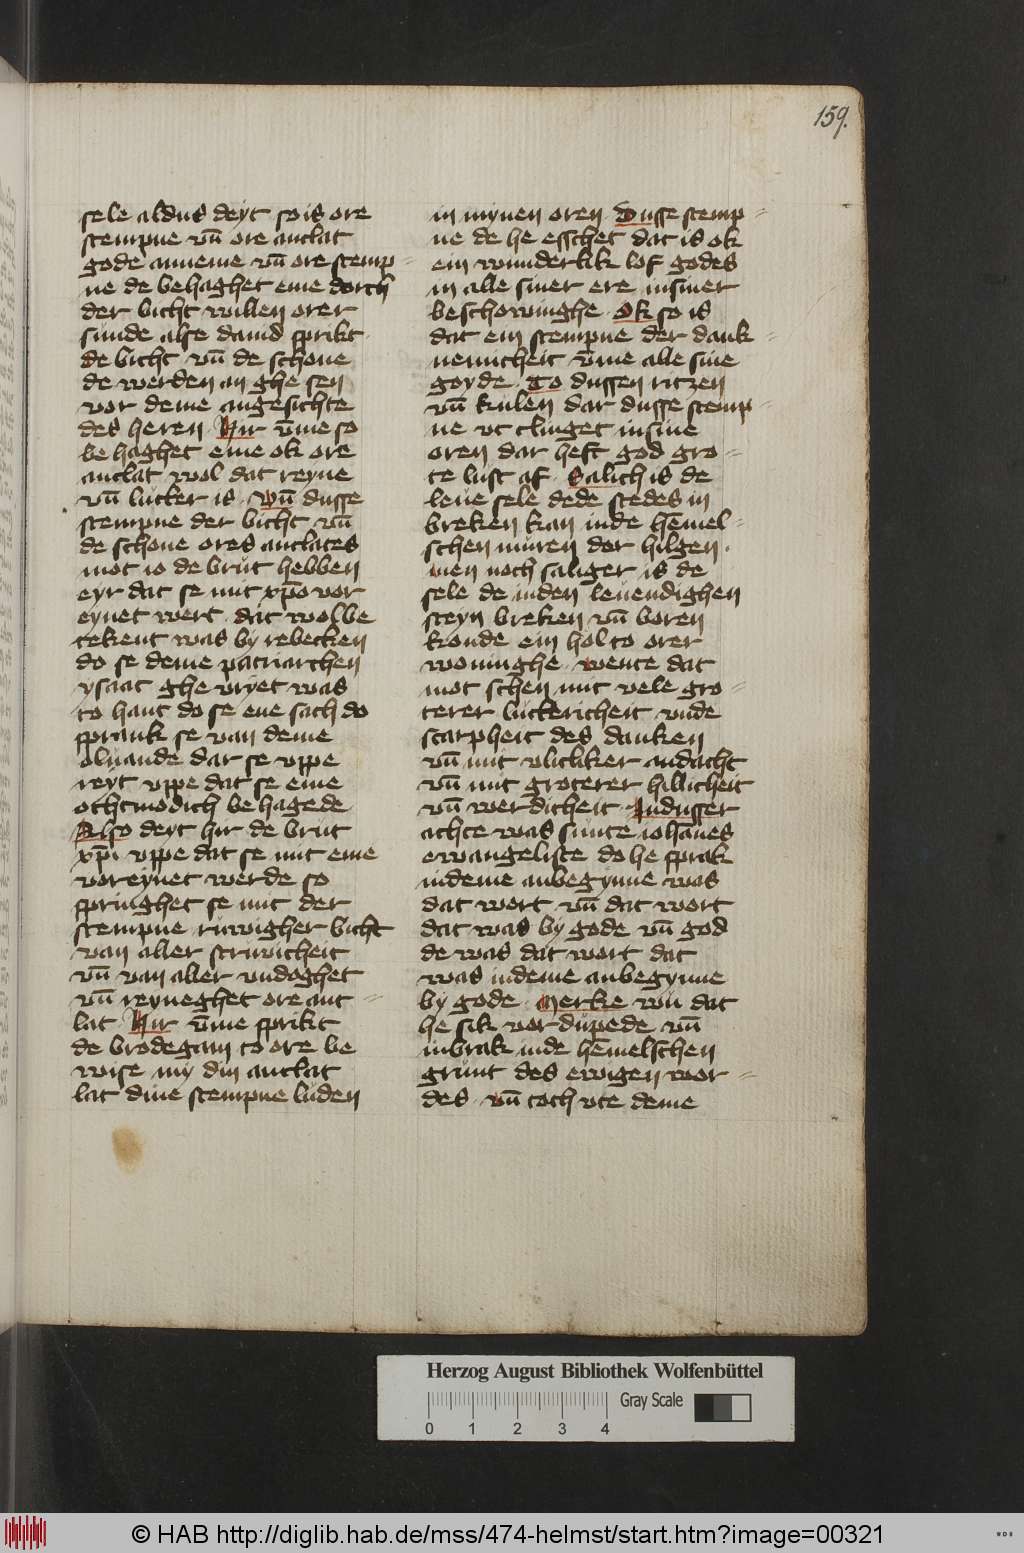 159.
sele aldus deyt so is ore
stempne vn̄ ore antlat
gode anneme vn̄ ore stemp=
ne de behaghet eme dorch
der bicht willen orer
sunde alse dauid sprikt
de bicht vn̄ de schone
de werden an ghe sen
vor deme angesichte
des heren Hir v̄me so
be haghet eme ok ore
antlat wol dat reyne
vn̄ lucter is vn̄ dusse
stempne der bicht vn̄
de schone ores antlates
mot io de brut hebben
eyr dat se mit xp̄o vor
eynet wert dat wol be
tekent was by rebecken
do se deme patriarchen
ysaac ghe vryet was
to hant do se ene sach do
sprank se van deme
oluande dar se vppe
reyt vppe dat se eme
othtmodich be hagede
Also deyt hir de brut
xp̄i vppe dat se mit eme
voreynet werde so
springhet se mit der
stempne ruwigher bicht
van aller struuicheit
vn̄ van aller vndoghet
vn̄ reyneghet ore ant=
lat Hir v̄me sprikt
de brodegam to ore be
wise my din antlat
lat dine stempne luden
in mynen oren Dusse stemp=
ne de he esschet dat is ok
ein wunderlik lof godes
in alle siner ere in siner
beschowinghe Ok so is
dat ein stempne der dank=
nemicheit v̄me alle sine
goyde To dussen ritzen
vn̄ kulen dar dusse stemp=
ne vt clinget in sine
oren dar heft god gro=
te lust af Salich is de
leue sele dede stedes in
breken kan in de hēmel=
schen muren der hilgen.
men noch saliger is de
sele de in den leuendighen
steyn breken vn̄ boren
konde ein hol to orer
woninghe wente dat
mot schen mit vele gro=
terer lucтericheit vnde
scarpheit des danken
vn̄ mit vlitliker andacht
vn̄ mit groterer hillicheit
vn̄ werdicheit In dusser
achte was sunte ioħanes
ewangeliste do he sprak
in deme anbegynne was
dat wort vn̄ dat wort
dat was by gode vn̄ god
de was dat wort dat
was in deme anbegynne
by gode Merke wu dat
he sik vordupede vn̄
inbrak in de hēmelschen
grunt des ewigen wor=
des vn̄ toch vte deme
Herzog August Bibliothek Wolfenbüttel
Gray Scale
0 1 2 3 4
© HAB http://diglib.hab.de/mss/474-helmst/start.htm?image=00321